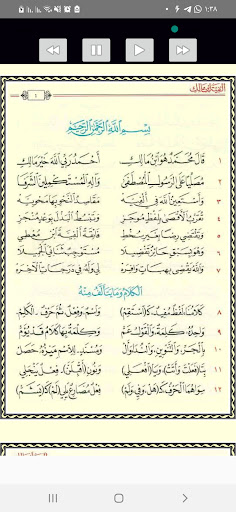 ١:٣٨
ألفية ابن مالك
١
بِسْمِ اللَّهِ الرَّحْمَنِ الرَّحِيمِ
١ قَالَ مُحَمَّدٌ هُوَ ابْنُ مَالِكِ أَحْمَدُ رَبِّي اللَّهَ خَيْرَ مَالِكِ
٢ مُصَلِّيًا عَلَى الرَّسُولِ الْمُصْطَفَى وَآلِهِ الْمُسْتَكْمِلِينَ الشَّرَفَا
٣ وَأَسْتَعِينُ اللَّهَ فِي أَلْفِيَّهْ مَقَاصِدُ النَّحْوِ بِهَا مَحْوِيَّهْ
٤ تُقَرِّبُ الْأَقْصَى بِلَفْظٍ مُوجَزِ وَتَبْسُطُ الْبَذْلَ بِوَعْدٍ مُنْجَزِ
٥ وَتَقْتَضِي رِضًا بِغَيْرِ سُخْطِ فَائِقَةً أَلْفِيَّةَ ابْنِ مُعْطِي
٦ وَهْوَ بِسَبْقٍ حَائِزٌ تَفْضِيلَا مُسْتَوْجِبٌ ثَنَائِيَ الْجَمِيلَا
٧ وَاللَّهُ يَقْضِي بِهِبَاتٍ وَافِرَهْ لِي وَلَهُ فِي دَرَجَاتِ الْآخِرَهْ
الْكَلَامُ وَمَا يَتَأَلَّفُ مِنْهُ
٨ كَلَامُنَا لَفْظٌ مُفِيدٌ كَـ(اسْتَقِمْ) وَاسْمٌ، وَفِعْلٌ، ثُمَّ حَرْفٌ- الْكَلِمْ
٩ وَاحِدُهُ: كَلِمَةٌ، وَالْقَوْلُ عَمّْ وَكِلْمَةٌ بِهَا كَلَامٌ قَدْ يُؤَمّْ
١٠ بِالْجَرِّ، وَالتَّنْوِينِ، وَالنِّدَا، وَأَلْ وَمُسْنَدٍ- لِلِاسْمِ تَمْيِيزٌ حَصَلْ
١١ بِتَا (فَعَلْتَ وَأَتَتْ)، وَيَا (افْعَلِي) وَنُونِ (أَقْبِلَنَّ)- فِعْلٌ يَنْجَلِي
١٢ سِوَاهُمَا الْحَرْفُ كَـ(هَلْ، وَفِي، وَلَمْ) فِعْلٌ مُضَارِعٌ يَلِي (لَمْ) كَـ(يَشَمّْ)